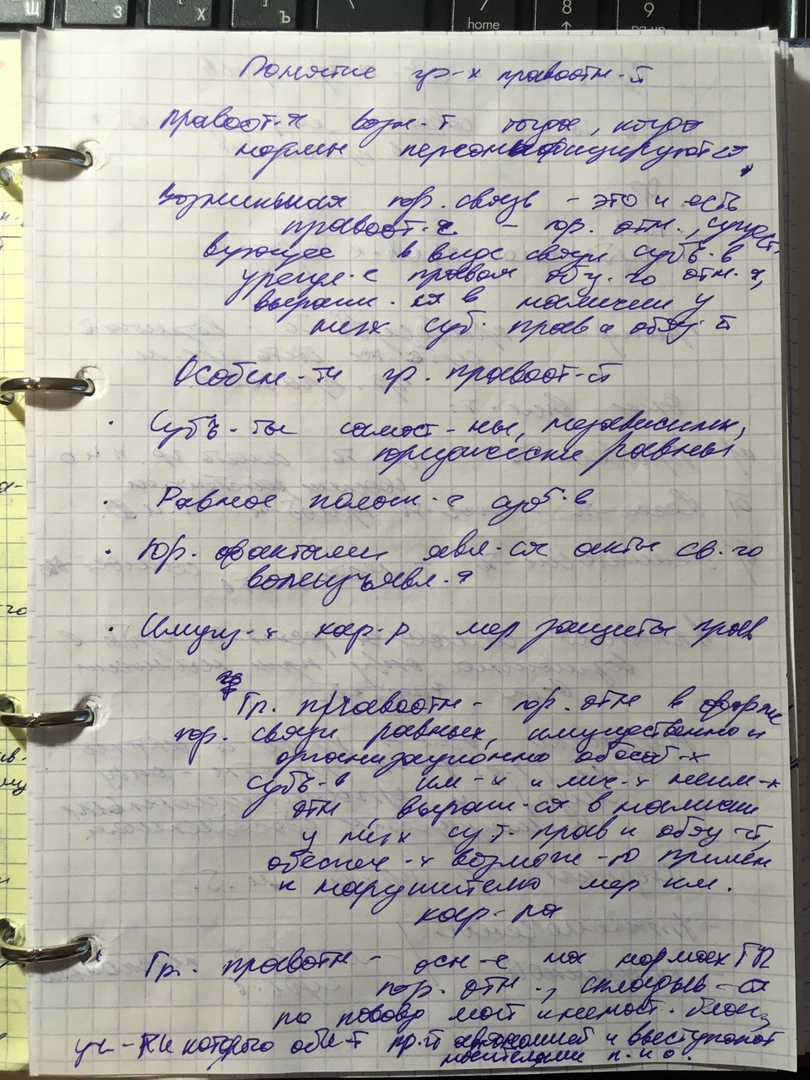 Щ
Х
Ъ
7
home
8
↑
9
pg up
Понятие гр-х правоотн-й
Правоот-я возн-т тогда, когда
нормы персонифицируются
Возникшая юр. связь - это и есть
правоот-е - юр. отн., сущест
вующее в виде связи субъ-в
урегул-е правом общ-го отн-я,
выраж-ся в наличии у
них суб. прав и обяз-й
Особен-ти гр. правоот-й
· Субъ-ты самост-ны, независимы,
юридически равны
· Равное полож-е суб-в
· Юр. фактами явл-ся акты св-го
волеизъявл-я
· Имущ-й хар-р мер защиты прав
Гр. правоотн - юр. отн в форме
юр. связи равных, имущественно и
организационно обособ-х
субъ-в им-х и лич-х неим-х
отн выраж-ся в наличии
у них суб. прав и обяз-й,
обеспеч-х возмож-ю примен
к нарушителю мер им.
хар-ра
Гр. правотн - осн-е на нормах ГП
юр. отн., складыв-ся
по поводу мат и немат. благ,
уч-ки которого обл-т автономией и выступают
носителями п. и о.